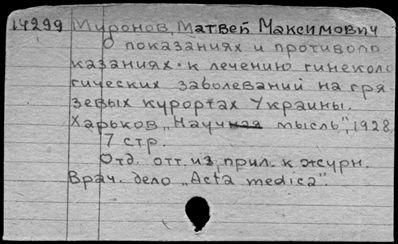 14299 Миронов, Матвей Максимович
О показаниях и противопо
казаниях к лечению гинеколо
гических заболеваний на гря
зевых курортах Украины.
Харьков, „Научная мысль", 1928,
7 стр.
Отд. отт. из прил. к журн.
Врач. дело „Acta medica".